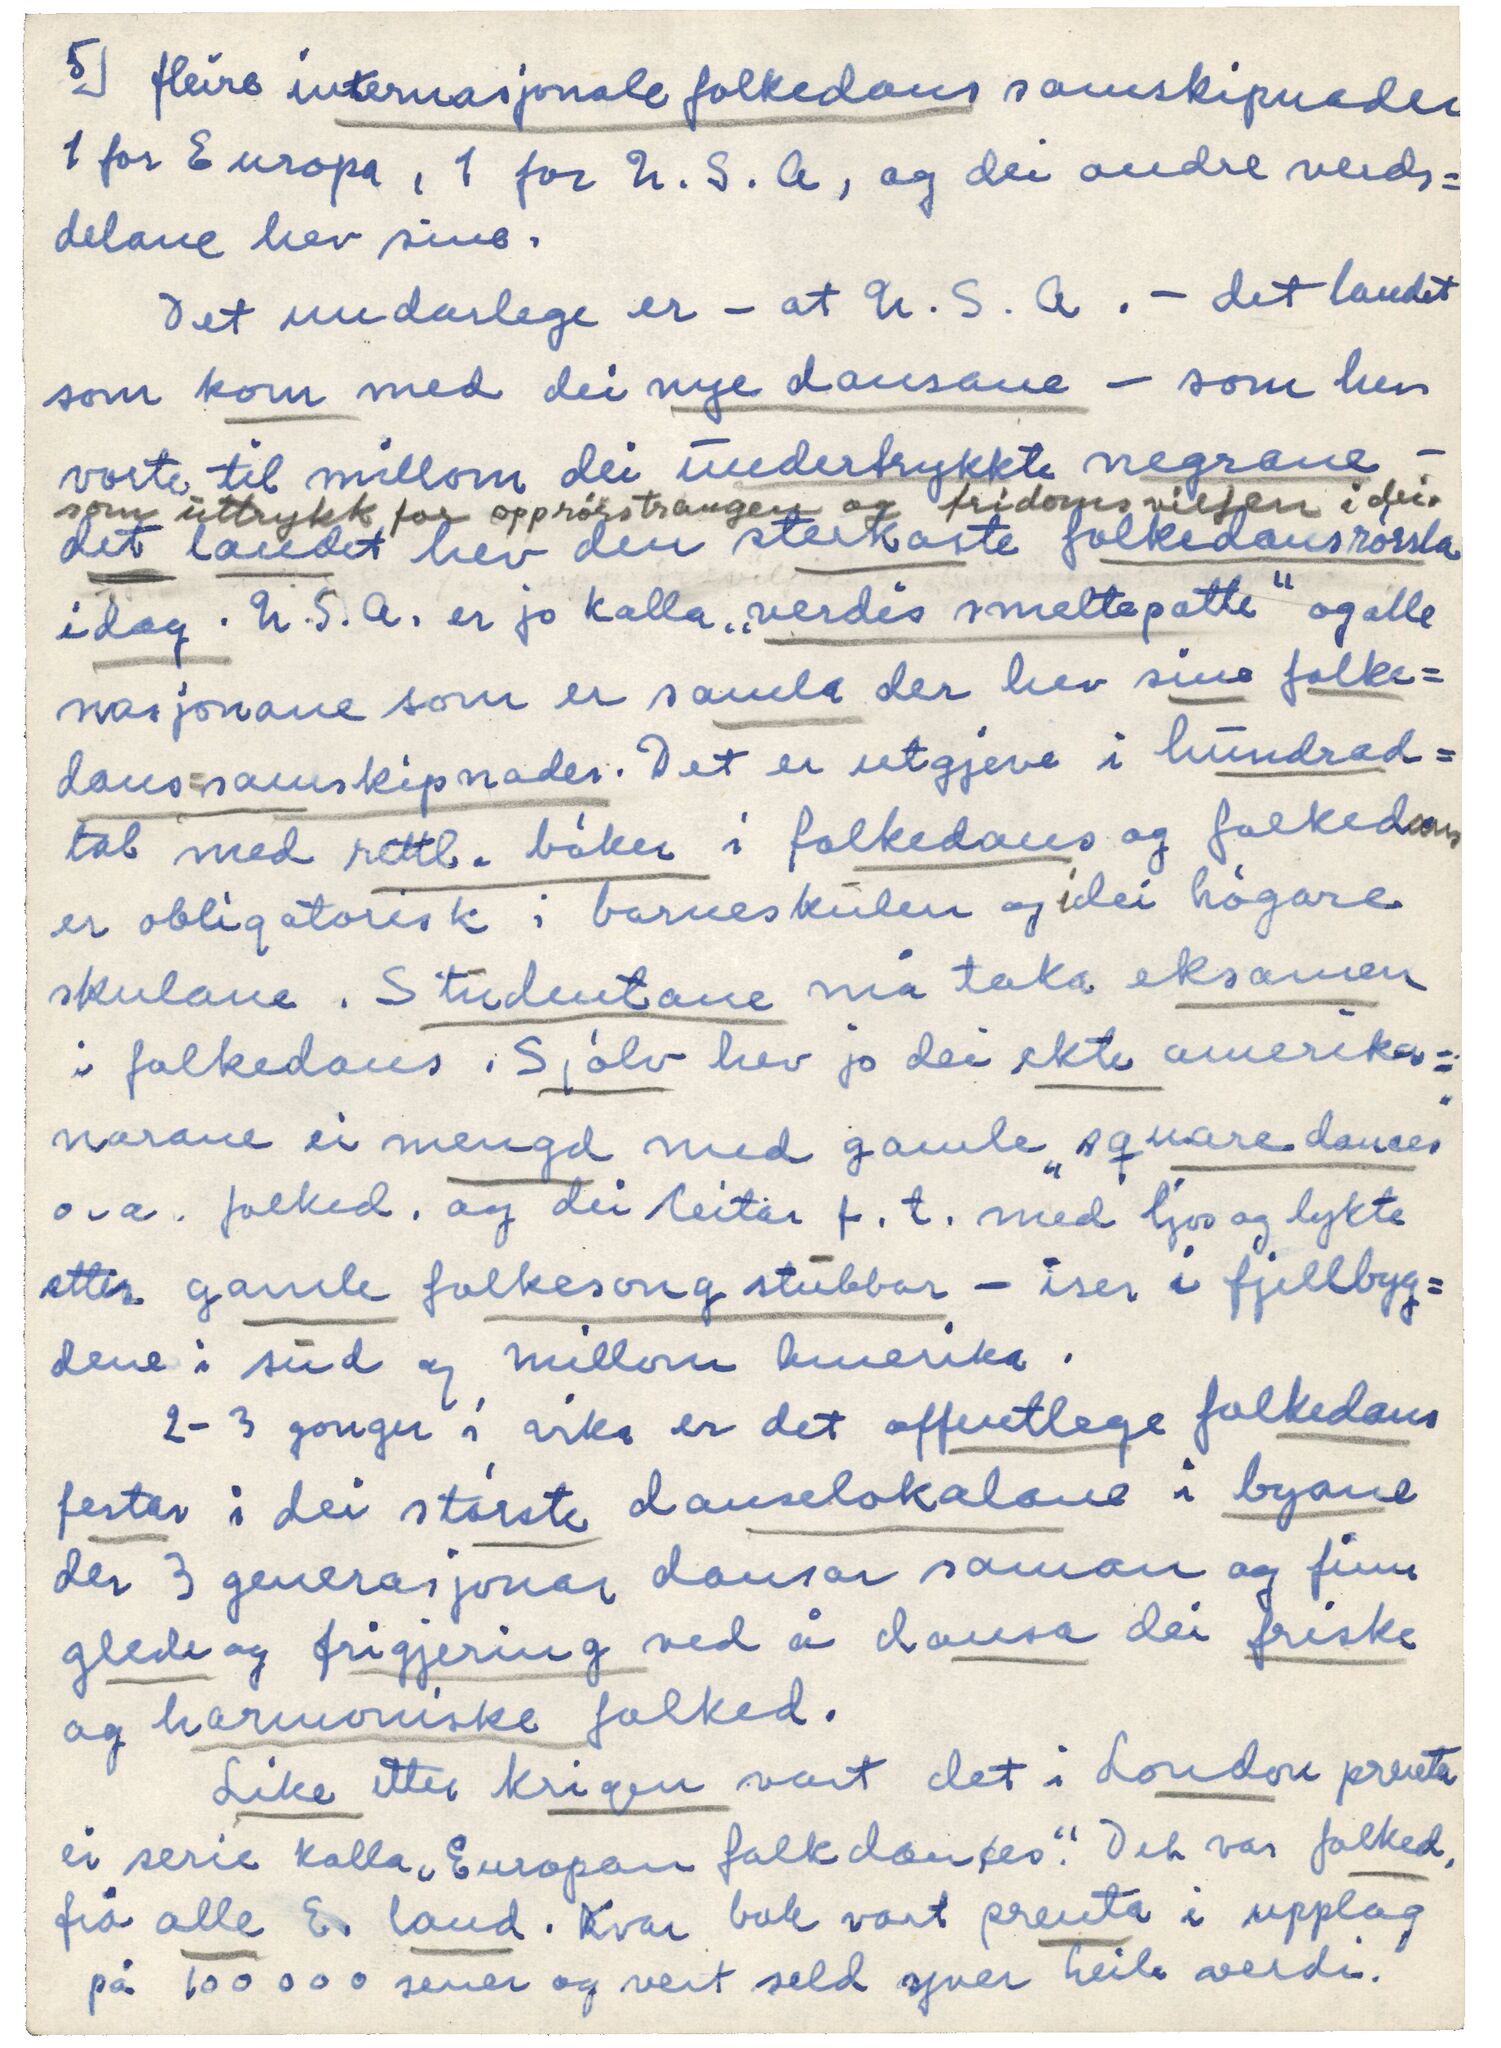 5) fleire internasjonale folkedans samskipnader
1 for Europa, 1 for U.S.A, og dei andre verds=
delane hev sine.
Det undarlege er - at U.S.A. - det landet
som kom med dei nye dansane - som hev
vorte til millom dei undertrykkte negrane -
som uttrykk for opprörstrangen og fridomsviljen i dei.
det landet hev den sterkaste folkedansrörsla
idag. U.S.A. er jo kalla „verdis smeltepotte" og alle
nasjonane som er samla der hev sine folke=
dans=samskipnader. Det er utgjeve i hundrad=
tal med rettl. böker i folkedans og folkedans
er obligatorisk i barneskulen og i dei högare
skulane. Studentane må taka eksamen
i folkedans. Sjölv hev jo dei ekte amerika=
narane ei mengd med gamle „square dances"
o.a. folked. og dei leitar f.t. med ljos og lykte
etter gamle folkesong stubbar - iser i fjellbyg=
dene i sud og millom Amerika.
2-3 gonger i vika er det offentlege folkedans
festar i dei störste danselokalane i byane
der 3 generasjonar dansar saman og finn
glede og frigjering ved å dansa dei friske
og harmoniske folked.
Like etter krigen vart det i London prenta
ei serie kalla „Europan folkdances". Det var folked,
frå alle E. land. Kvar bok vart prenta i upplag
på 100000 sener og vert seld yver heile verdi.